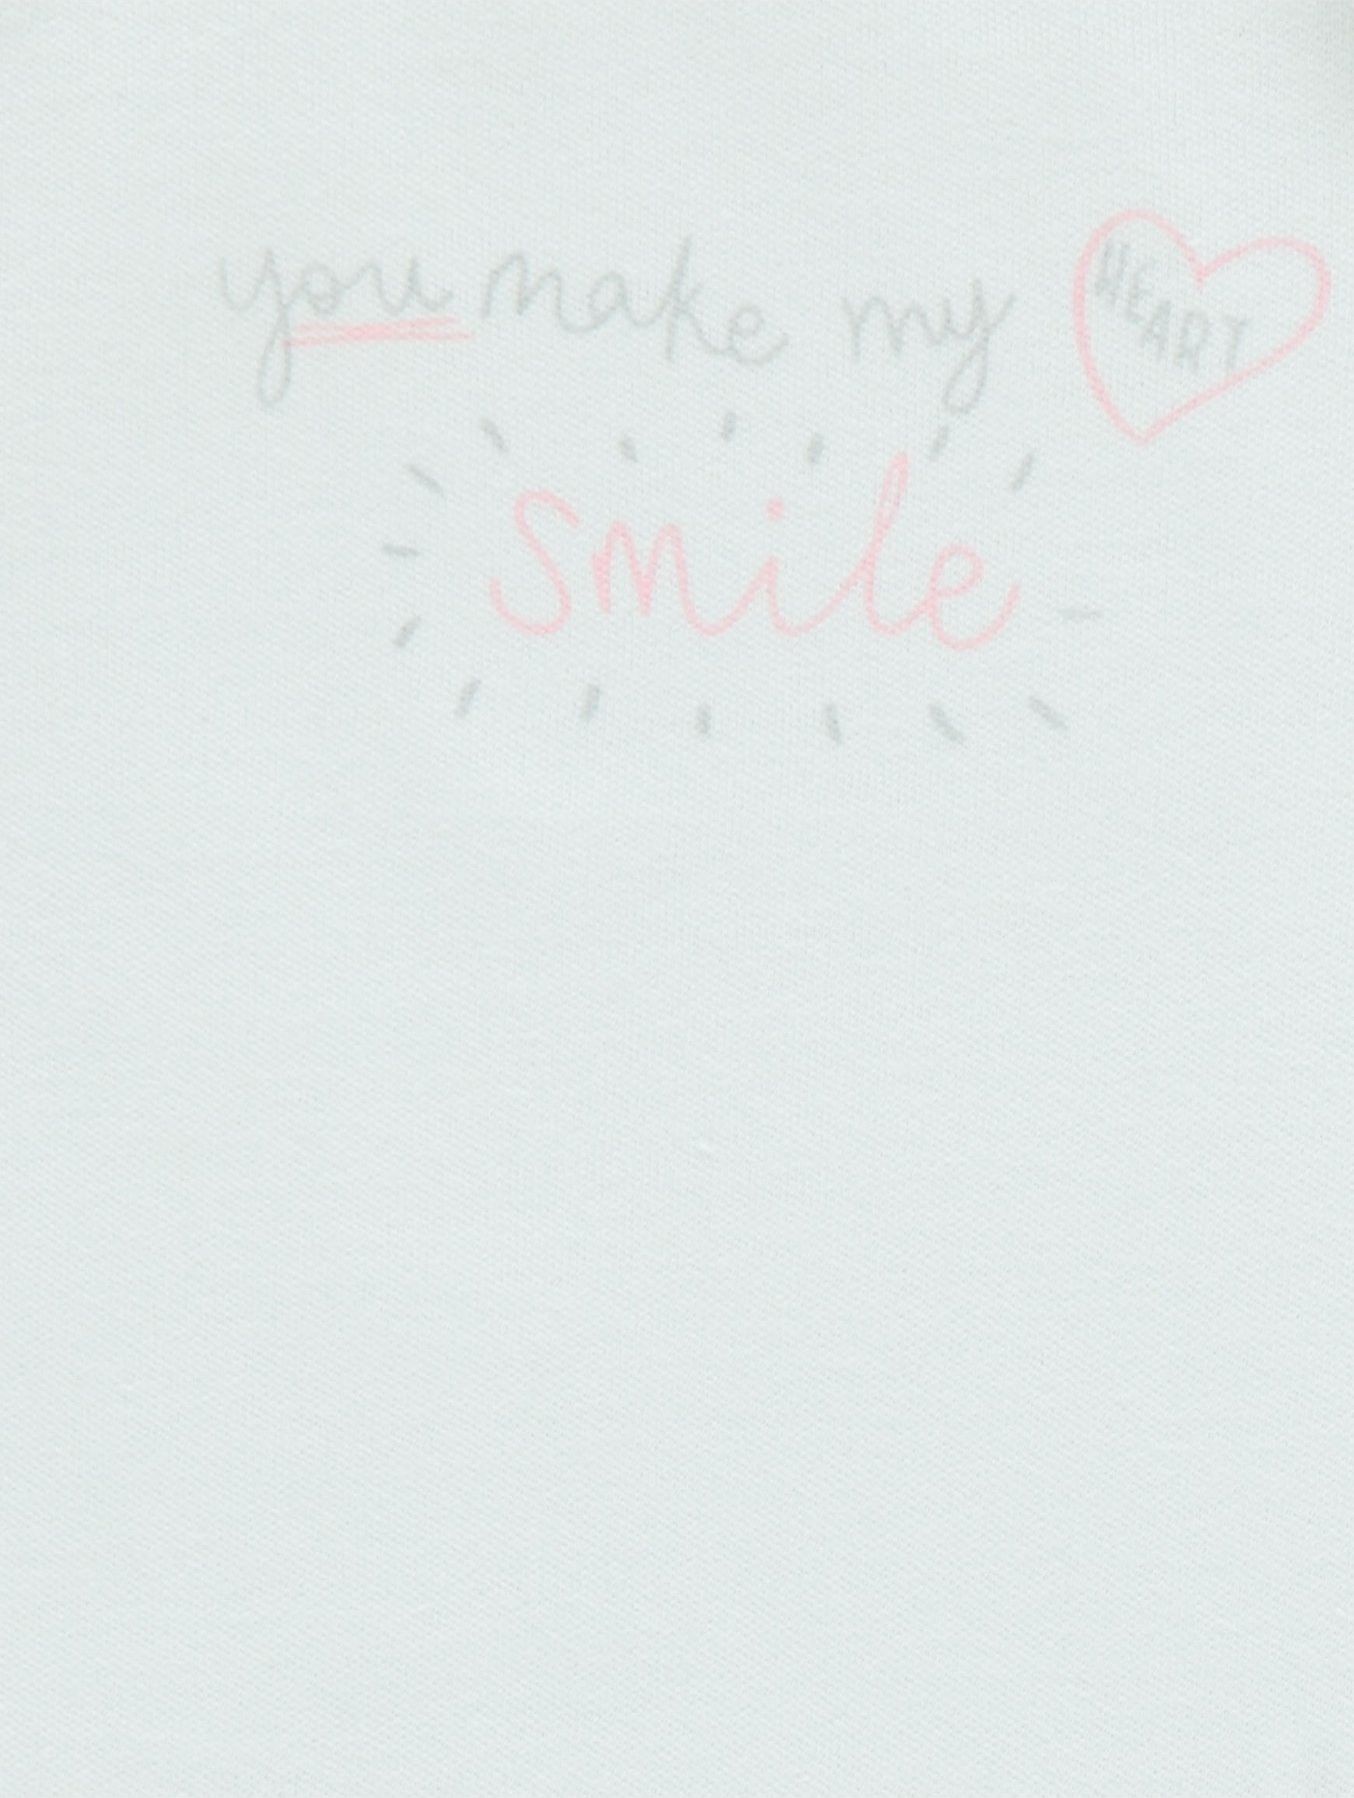 you make my HEART
smile